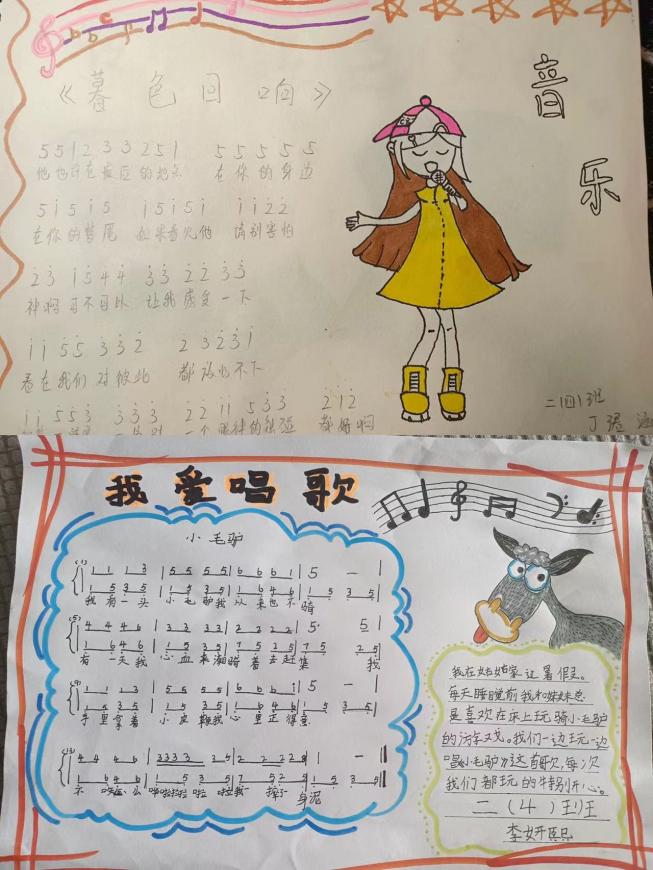 《暮色回响》
音乐
5 5 1 2 3 3 2 5 1 5 5 5 5 5
他也许在极远的地点 在你的身边
5 i 5 i 5 i 5 i 5 i i i 2 2
在你的梦尾 如果看见他 请别害怕
2 3 i 5 4 4 3 3 2 2 3 3
神啊可不可以 让我感受一下
i i 5 5 3 3 2 2 3 2 3 i
看在我们对彼此 都放心不下
i i 5 5 3 3 3 3 2 2 i i 5 3 3 2 i 2
都好啊
二(四)班
丁
我爱唱歌
小毛驴
(1) 1 1 1 3 5 5 5 5 6 6 6 1 5 —
1 5 3 5 1 5 3 5 1 6 4 6 1 5 3 5
我有一头 小毛驴我 从来也不 骑
(5) 4 4 4 6 3 3 3 3 2 2 2 2 5· 5
1 6 4 6 1 5 3 5 7 5 2 5 7 5 2 5
有一天我 心血来潮 骑着去赶集 我
(9) 1 1 1 3 5 5 5 5 6 6 6 1 5 —
1 5 3 5 1 5 3 5 1 6 4 6 1 5 3 5
手里拿着 小皮鞭我 心里正得意
(13) 4 4 4 6 3 3 3 3 3 2 2 2 3 1 —
1 6 4 6 1 5 3 5 7 5 2 5 1 5 3 5
身泥
我在姑姑家过暑假。
每天睡觉前我和妹妹总
是喜欢在床上玩骑小毛驴
的游戏。我们一边玩一边
唱《小毛驴》这首歌,每次
我们都玩的特别开心。
二(4)班
李妍熙